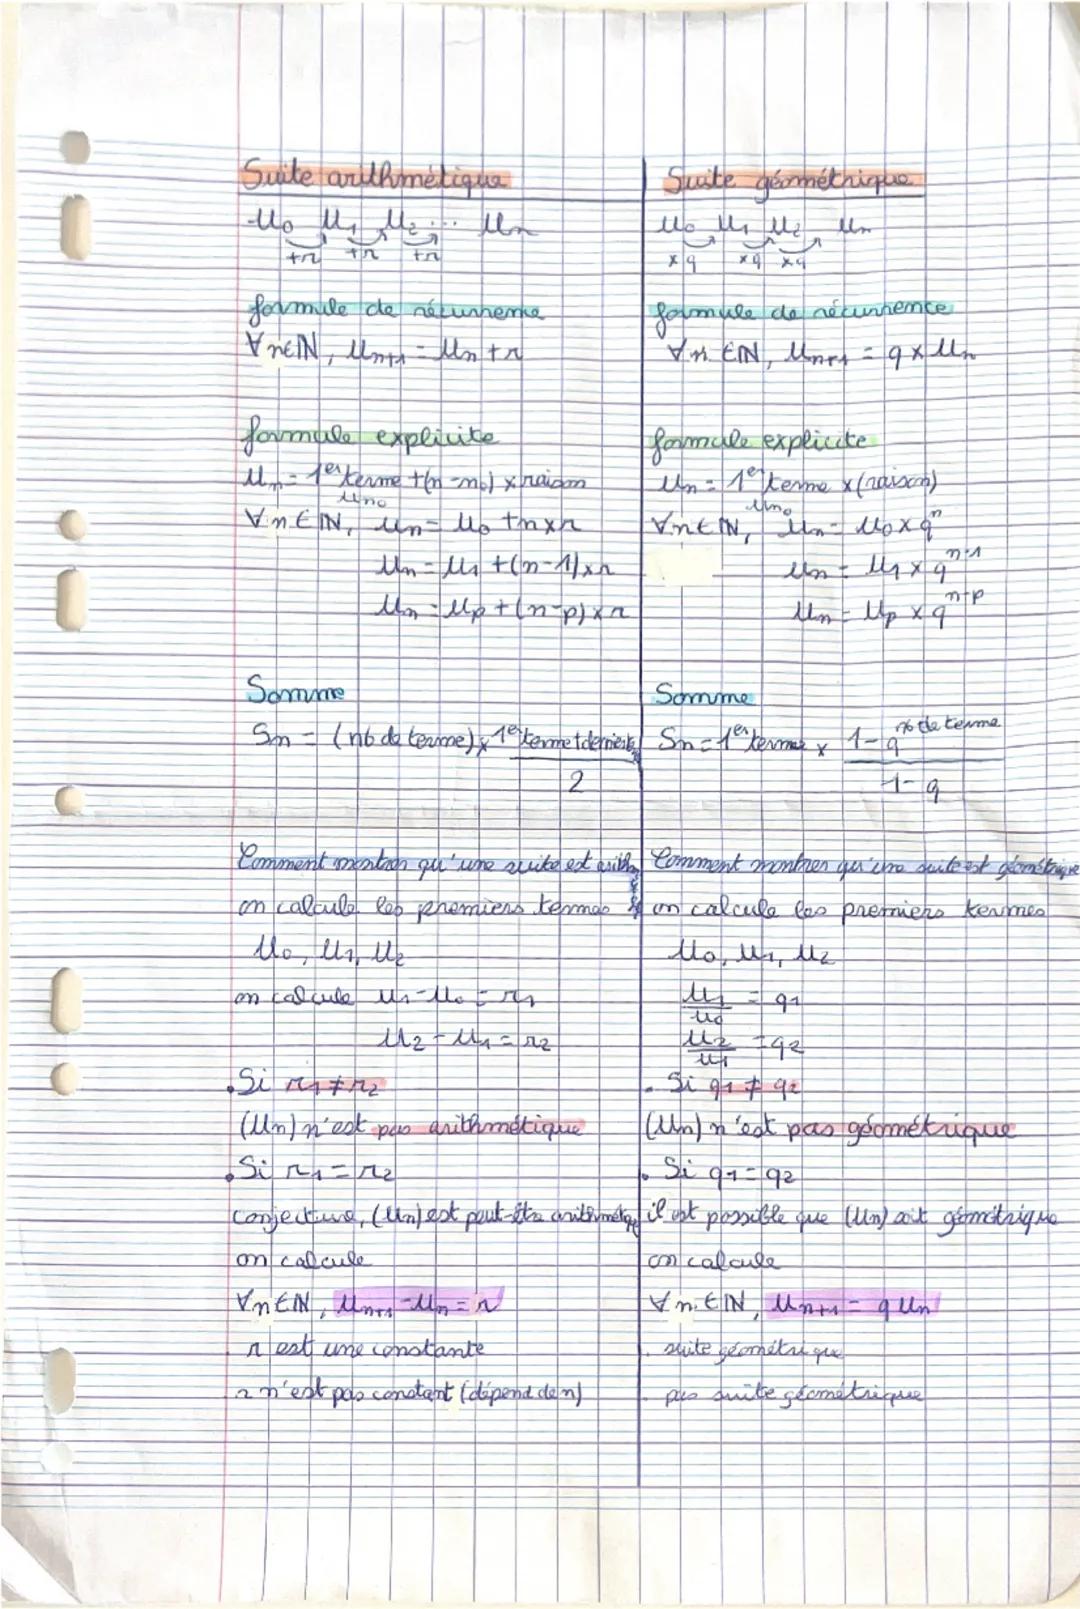 Suite arithmétique
u₀ u₁ u₂ ... uₙ
+r +r +r
formule de récurrence
∀n∈ℕ, uₙ₊₁ = uₙ + r
formule explicite
uₙ = 1er terme + (n - n₀) × raison
uₙ₀
∀n∈ℕ, uₙ = u₀ + n×r
uₙ = u₁ + (n-1)×r
uₙ = uₚ + (n-p)×r
Somme
Sn = (nb de terme) × 1er terme + dernier
2
Comment montrer qu'une suite est arithm
on calcule les premiers termes
u₀, u₁, u₂
on calcule u₁ - u₀ = r₁
u₂ - u₁ = r₂
• Si r₁ ≠ r₂
(uₙ) n'est pas arithmétique
• Si r₁ = r₂
conjecture, (uₙ) est peut-être arithmétique
on calcule
∀n∈ℕ, uₙ₊₁ - uₙ = r
r est une constante
r n'est pas constant (dépend de n)
Suite géométrique
u₀ u₁ u₂ uₙ
×q ×q ×q
formule de récurrence
∀n∈ℕ, uₙ₊₁ = q × uₙ
formule explicite
uₙ = 1er terme × (raison)
uₙ₀
∀n∈ℕ, uₙ = u₀ × qⁿ
uₙ = u₁ × qⁿ⁻¹
uₙ = uₚ × qⁿ⁻ᵖ
Somme
Sn = 1er terme × 1 - q nb de terme
1 - q
Comment montrer qu'une suite est géométrique
on calcule les premiers termes
u₀, u₁, u₂
u₁/u₀ = q₁
u₂/u₁ = q₂
• Si q₁ ≠ q₂
(uₙ) n'est pas géométrique
• Si q₁ = q₂
il est possible que (uₙ) soit géométrique
on calcule
∀n∈ℕ, uₙ₊₁ = q uₙ
. suite géométrique
. pas suite géométrique